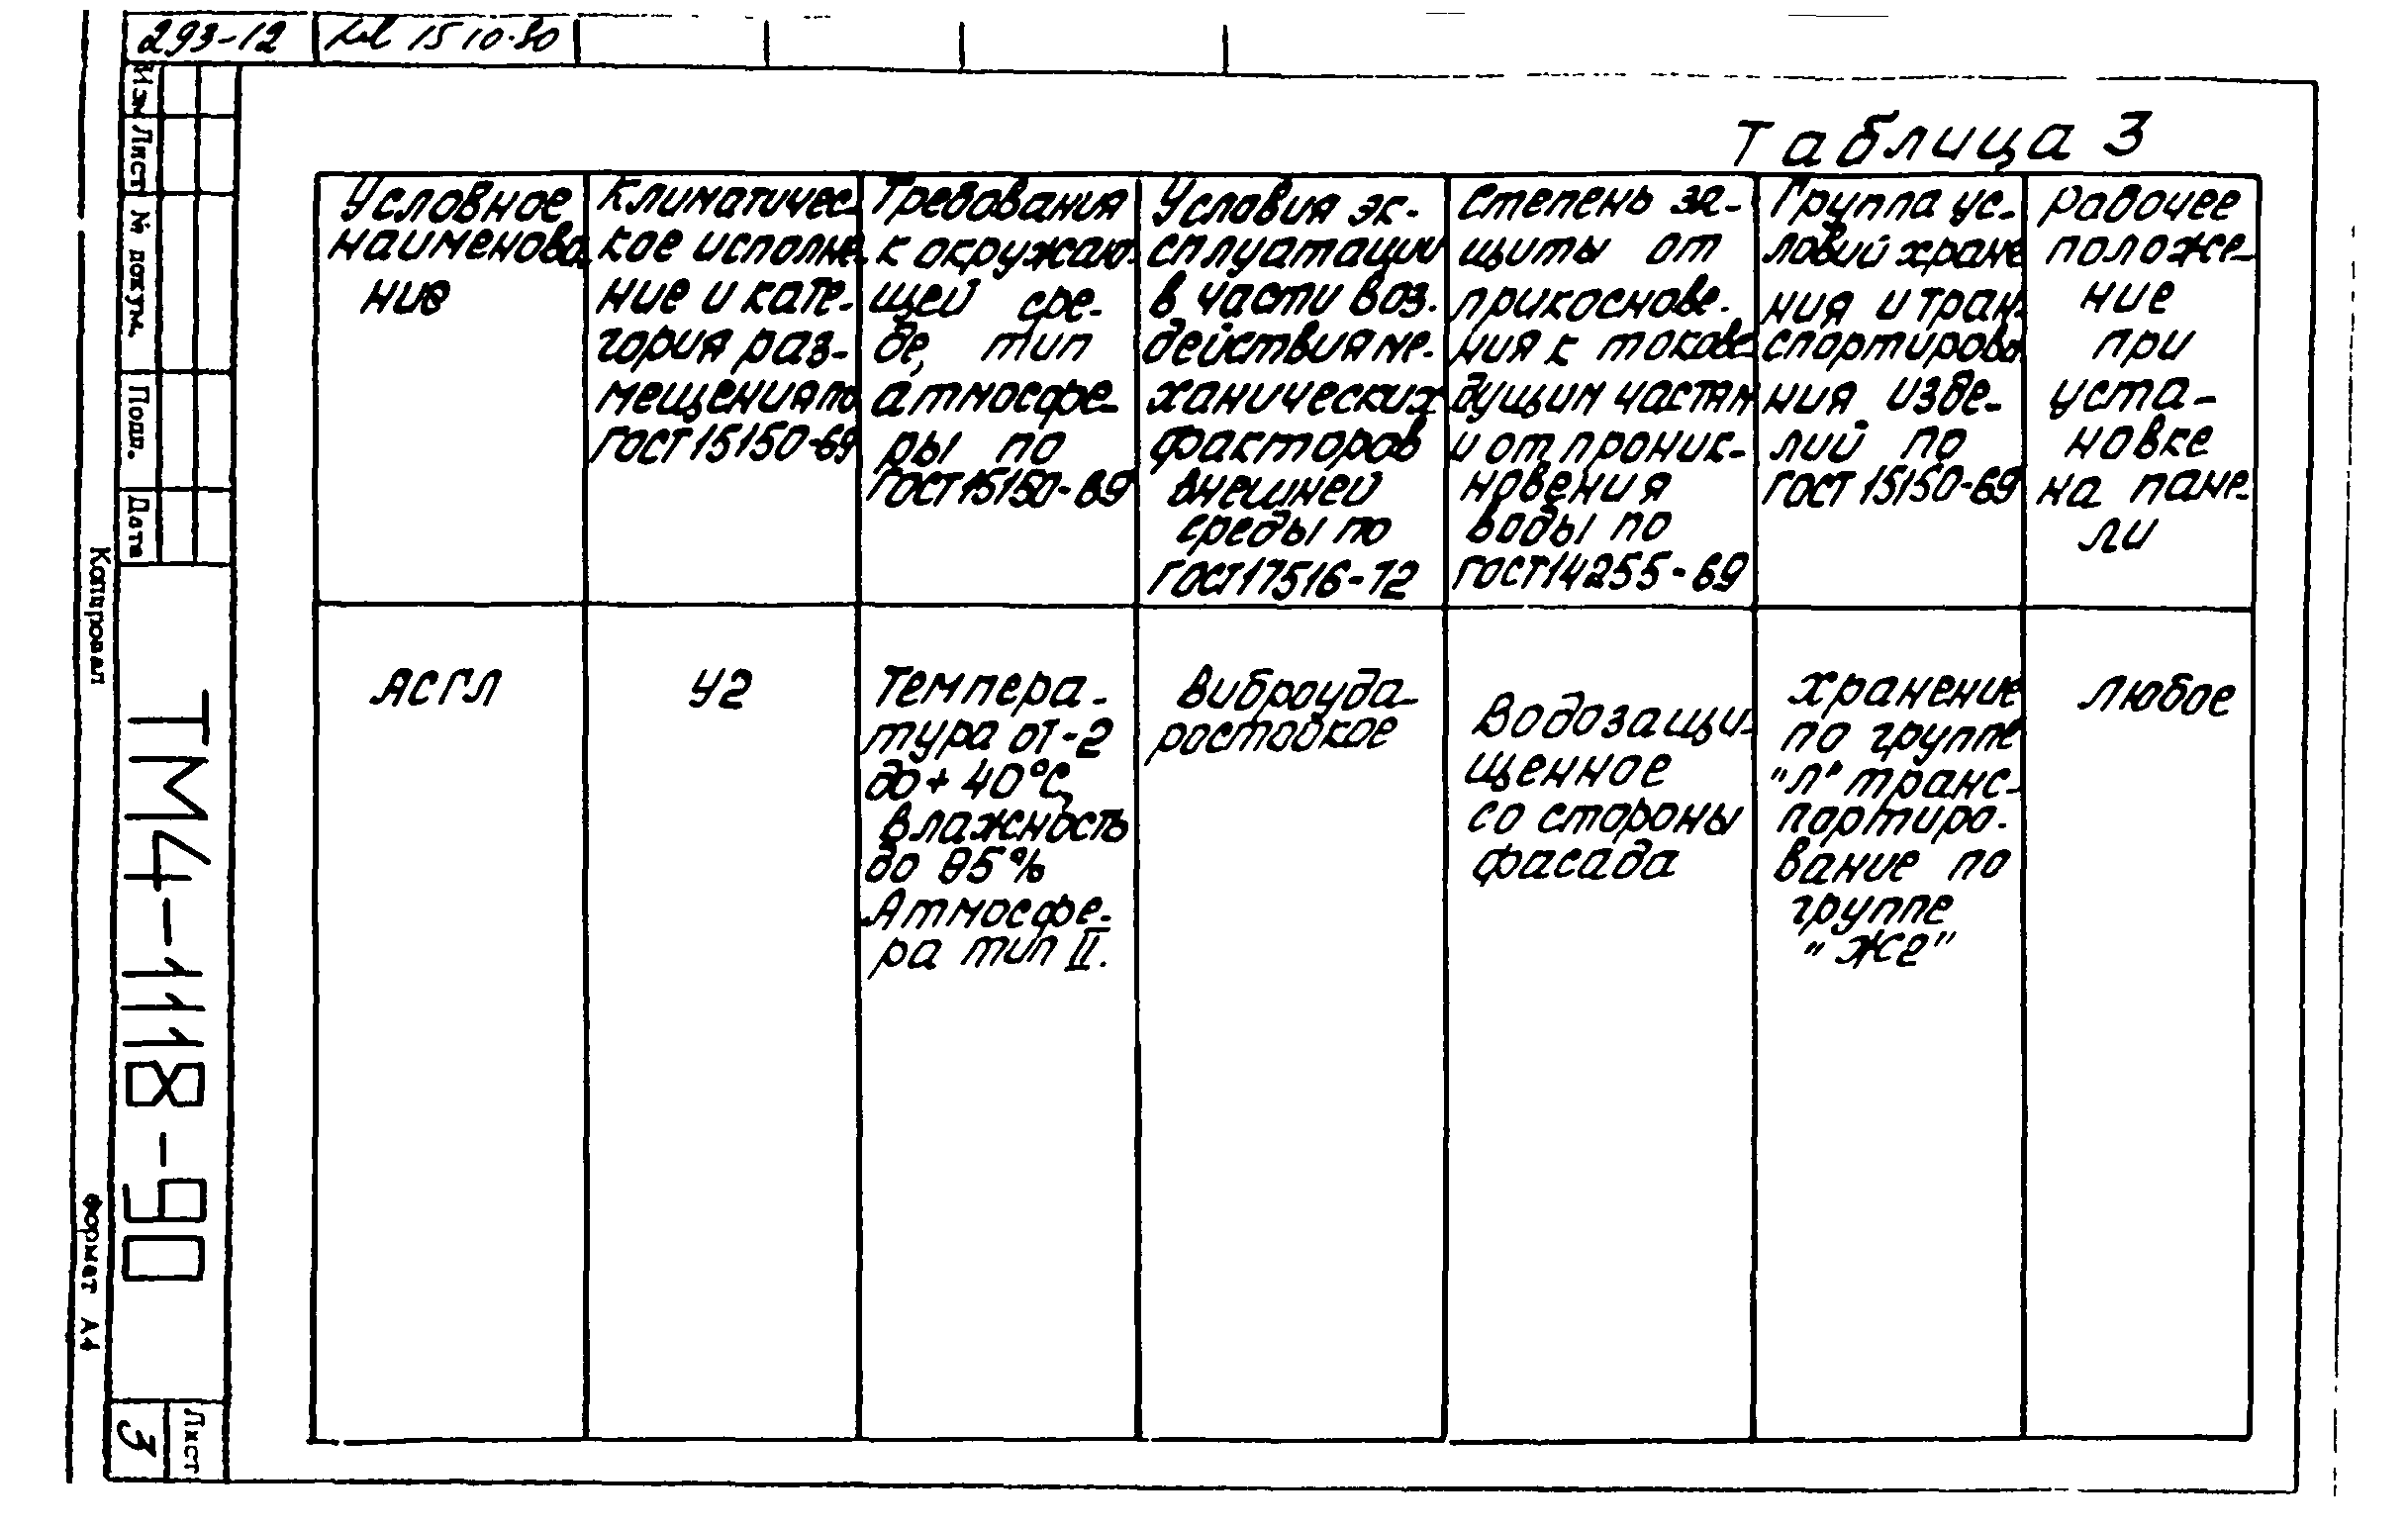 293-12
15 10.90
Таблица 3
Условное
наименова
ние
Климатичес-
кое исполне-
ние и кате-
гория раз-
мещения по
ГОСТ 15150-69
Требования
к окружаю-
щей сре-
де, тип
атмосфе-
ры по
ГОСТ 15150-69
Условия эк-
сплуатации
в части воз-
действия ме-
ханических
факторов
внешней
среды по
ГОСТ 17516-72
Степень за-
щиты от
прикоснове-
ния к токове-
дущим частям
и от проник-
новения
воды по
ГОСТ 14255-69
Группа ус-
ловий хране
ния и тран-
спортирова
ния изде-
лий по
ГОСТ 15150-69
Рабочее
положе-
ние
при
уста-
новке
на пане-
ли
АСГЛ
У2
Темпера-
тура от -2
до + 40°С,
влажность
до 85%
Атмосфе-
ра тип II.
Виброуда-
ростойкое
Водозащи-
щенное
со стороны
фасада
хранение
по группе
"Л" транс-
портиро-
вание по
группе
"Ж2"
любое
Изм Лист № докум. Подп. Дата
ТМ4-1118-90
Лист
3
Копировал
Формат А4